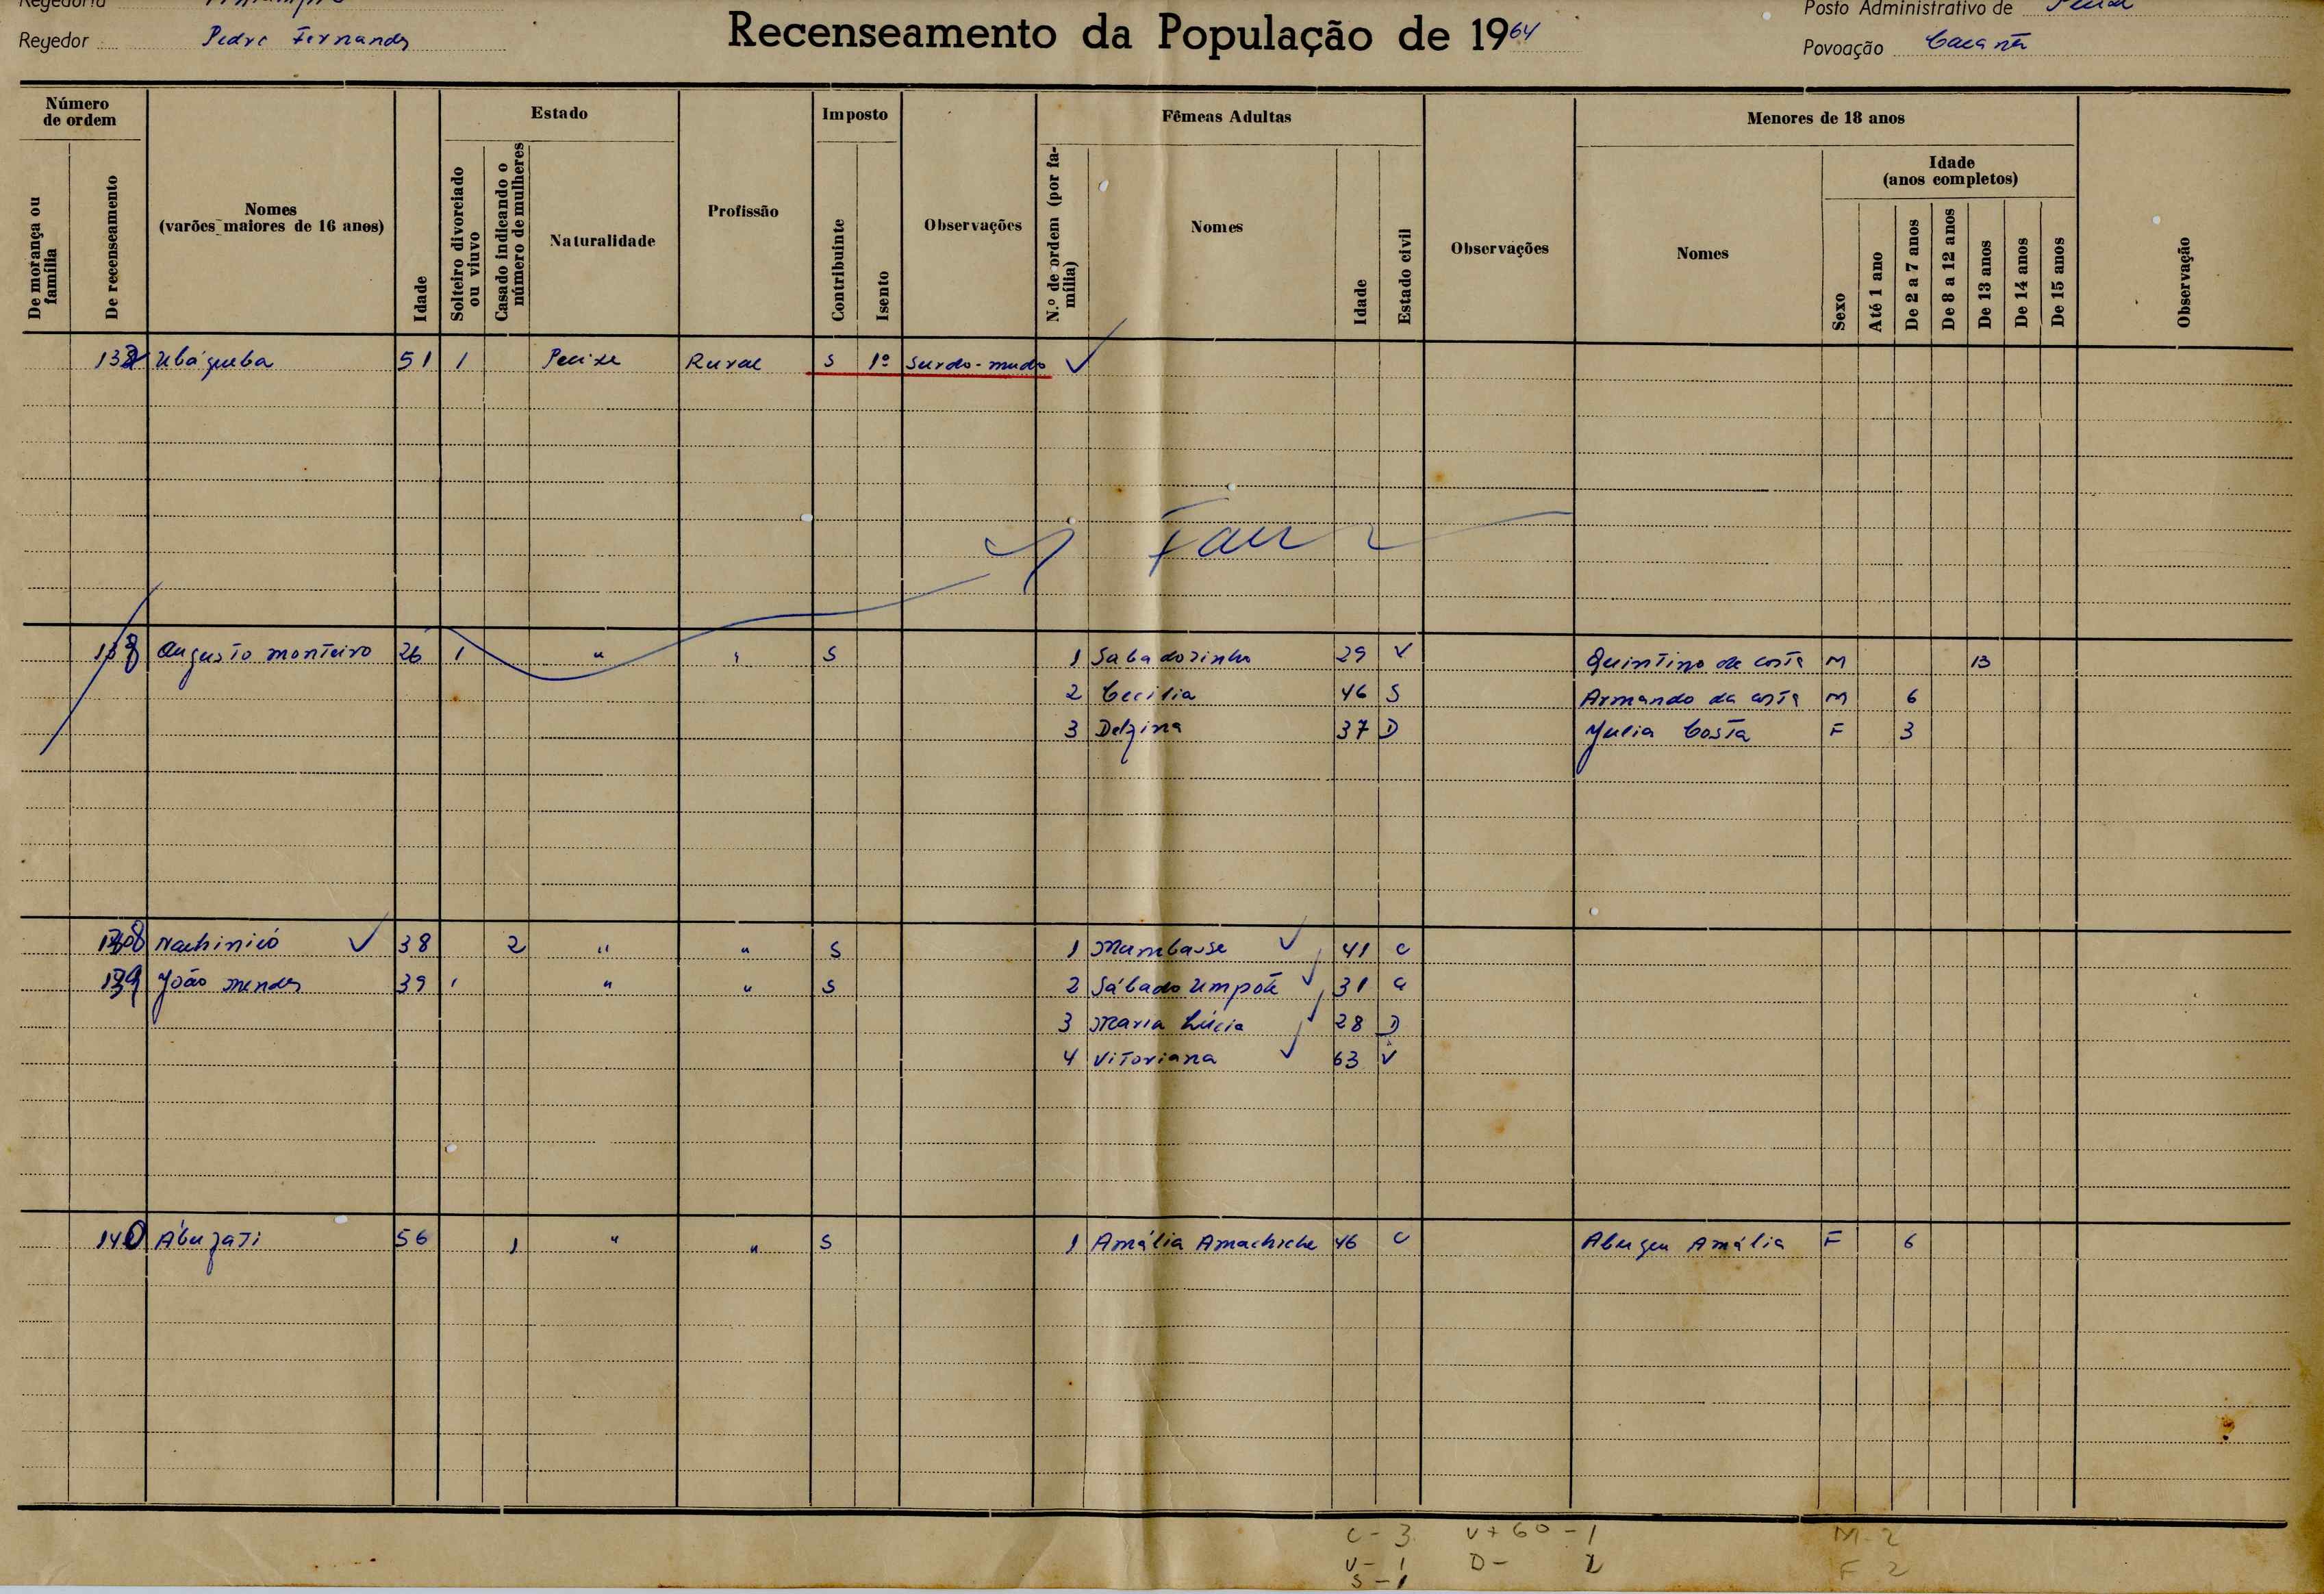 Regedoria
Regedor Pedro Fernandes
Recenseamento da População de 1964
Posto Administrativo de
Povoação
Número de ordem
De morança ou família
De recenseamento
Nomes
(varões maiores de 16 anos)
Idade
Estado
Solteiro divorciado ou viuvo
Casado indicando o número de mulheres
Naturalidade
Profissão
Imposto
Contribuinte
Isento
Observações
Fêmeas Adultas
N.º de ordem (por família)
Nomes
Idade
Estado civil
Observações
Menores de 18 anos
Nomes
Sexo
Idade
(anos completos)
Até 1 ano
De 2 a 7 anos
De 8 a 12 anos
De 13 anos
De 14 anos
De 15 anos
Observação
Ubágueba 51 1 Pecixe Rural S 1º Surdo-mudo
Augusto Monteiro 26 1 " " S 1 Sabadozinho 29 V Quintino da Costa M 13
2 Cecilia 46 S Armando da Costa M 6
3 Delzina 37 D Julia Costa F 3
Nachinicó 38 2 " " S 1 Mumbasse 41 C
139 João Mendes 39 1 " " S 2 Sábado Umpote 31 C
3 Maria Lúcia 28 D
4 Vitoriana 63 V
140 Ábuzati 56 1 " " S 1 Amália Amachiche 46 C Abugeu Amália F 6
C - 3 V + 60 - 1 M - 2
V - 1 D - 2 F 2
S - 1